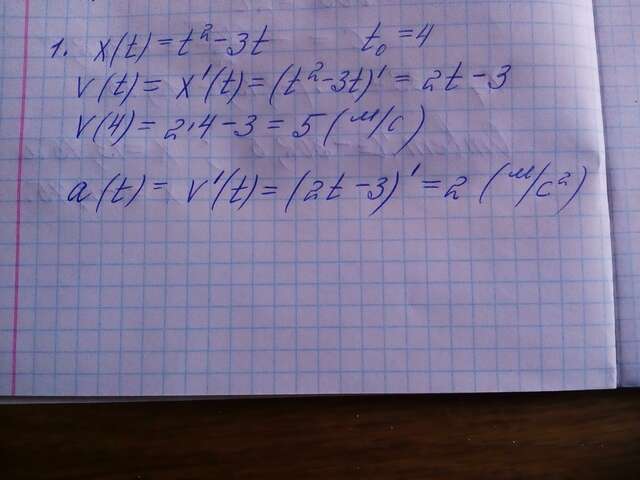 1. x(t) = t² - 3t t₀ = 4
v(t) = x'(t) = (t² - 3t)' = 2t - 3
v(4) = 2·4 - 3 = 5 (м/с)
a(t) = v'(t) = (2t - 3)' = 2 (м/с²)